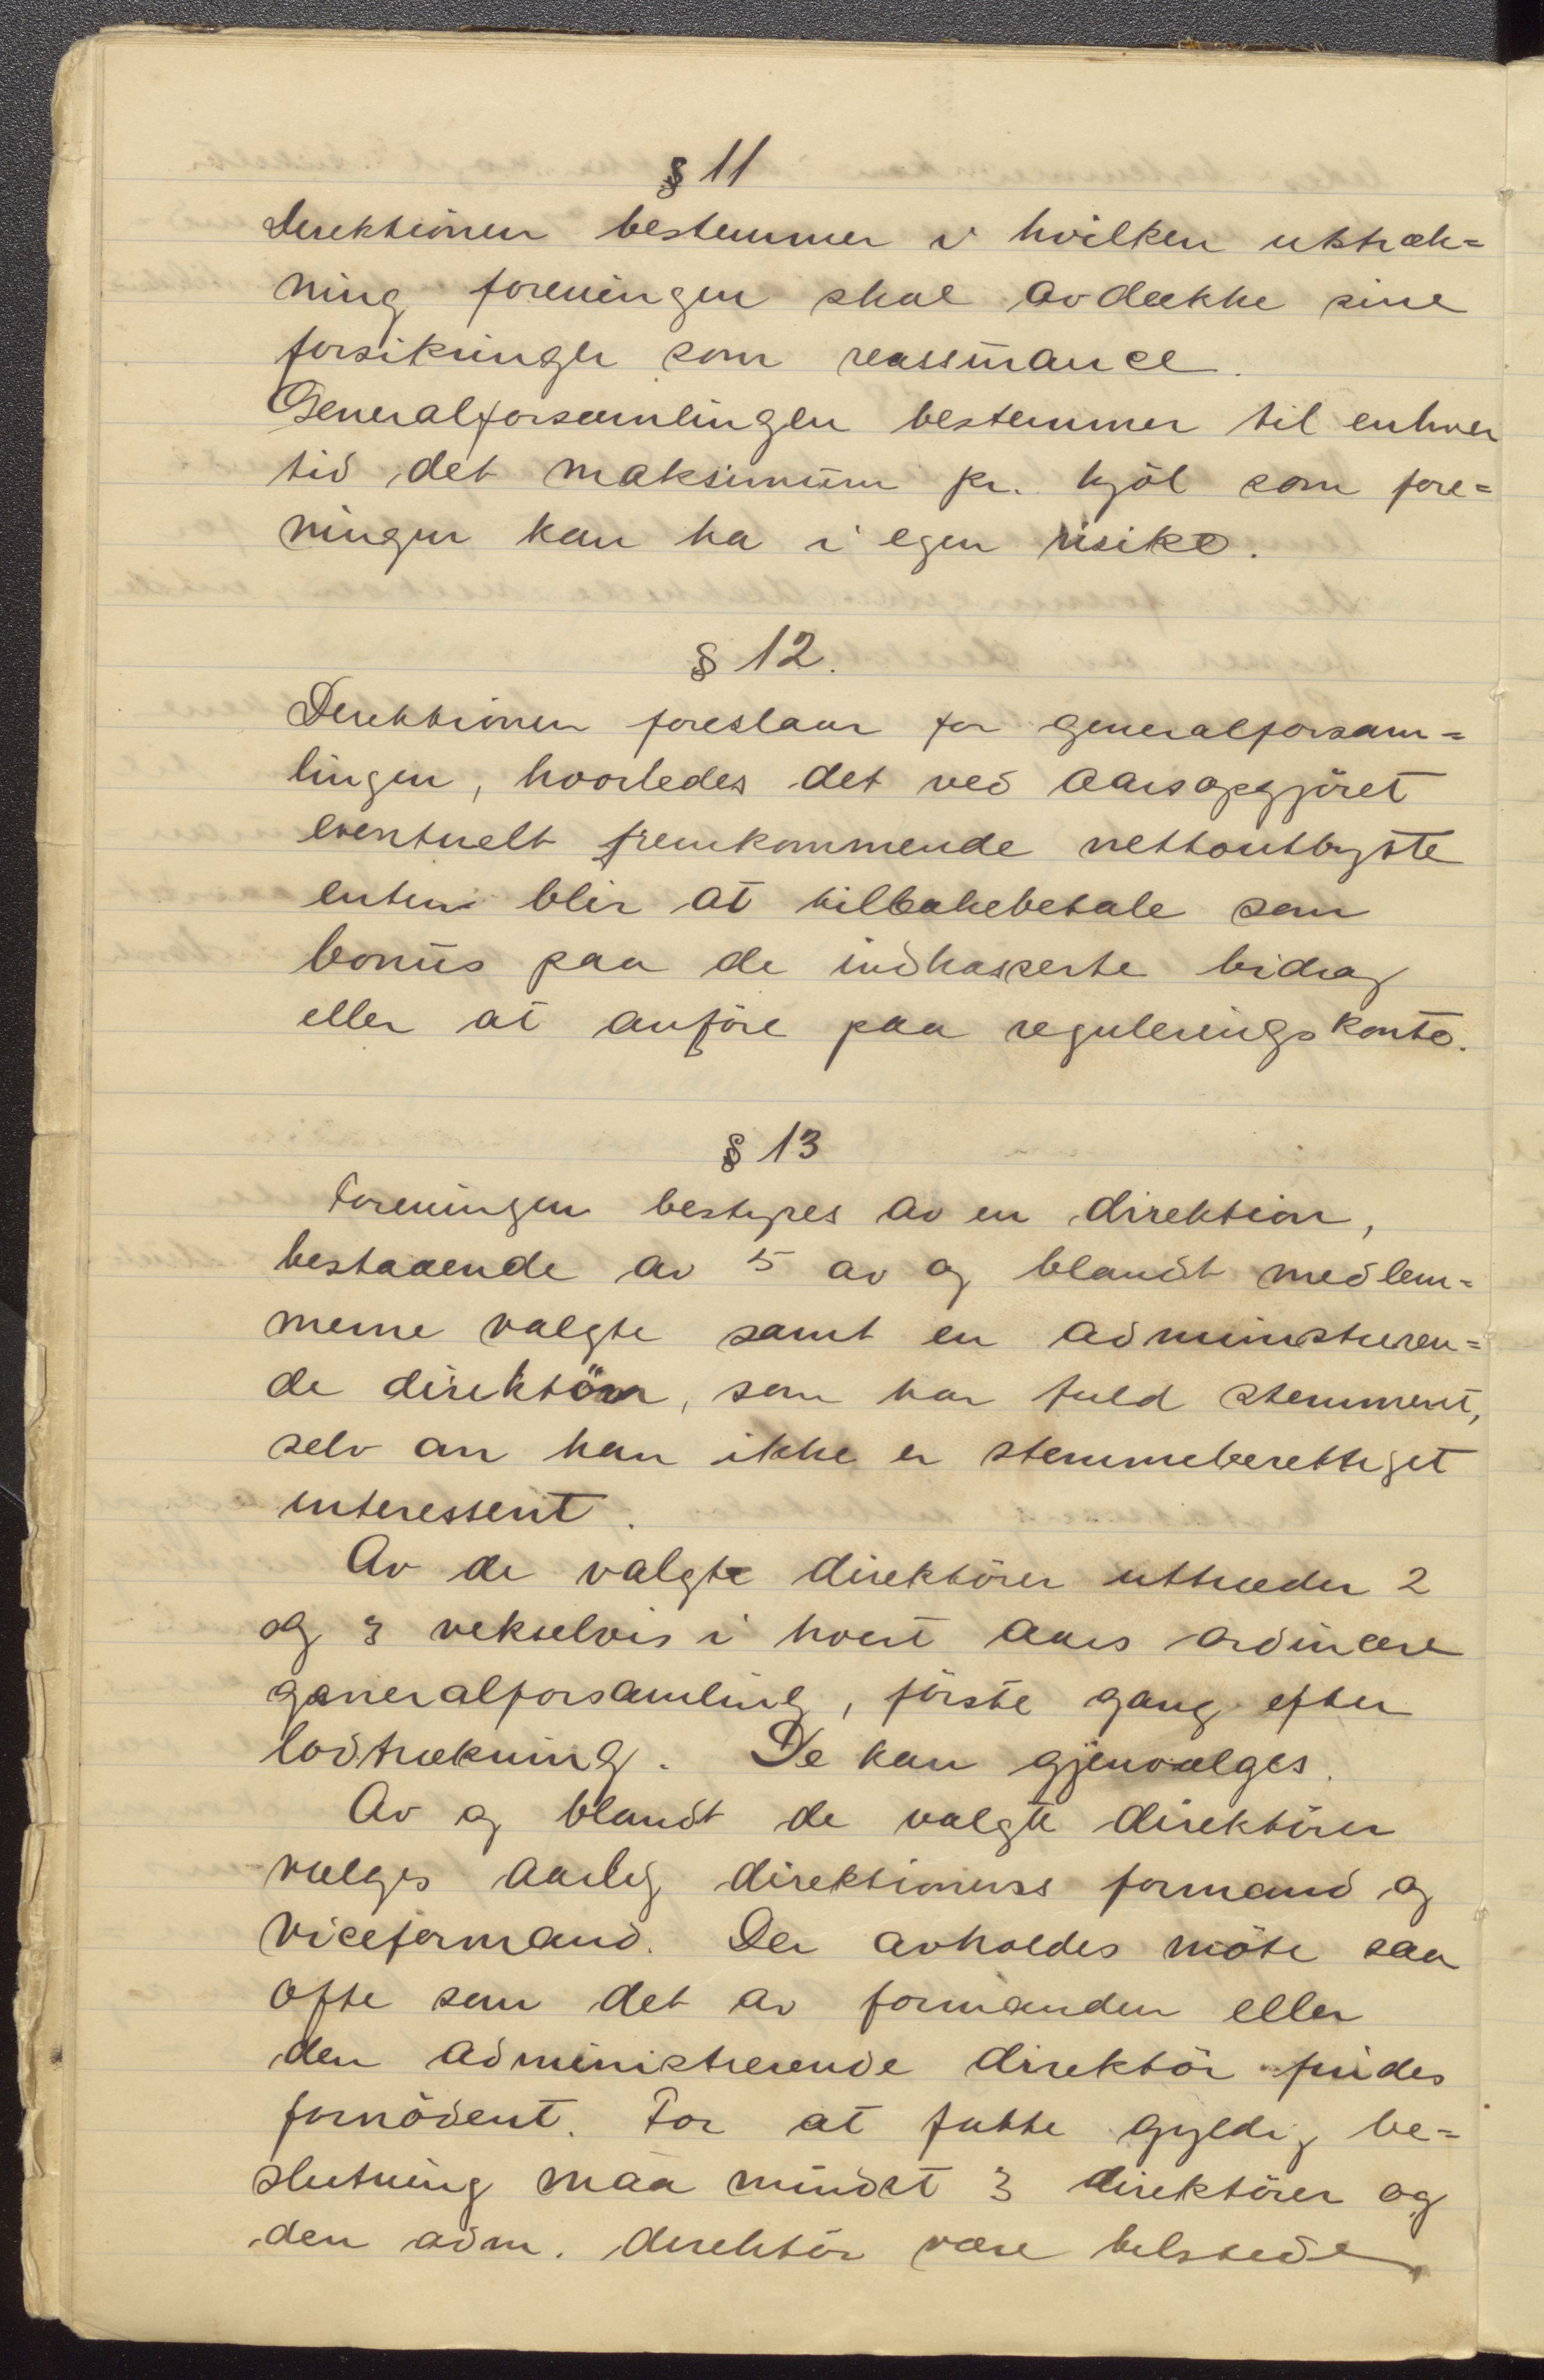 § 11
Direktionen bestemmer i hvilken utstræk=
ning foreningen skal avdekke sine
forsikringer som reassurance.
Generalforsamlingen bestemmer til enhver
tid det maksimum pr. kjøl som fore=
ningen kan ha i egen risiko.
§ 12.
Direktionen foreslaar for generalforsam=
lingen, hvorledes det ved aarsopgjöret
eventuelt fremkommende nettoutbytte
enten blir at tilbakebetale som
bonus paa de indkasserte bidrag
eller at anföre paa reguleringskonto.
§ 13
Foreningen bestyres av en direktion,
bestaaende av 5 av og blandt medlem=
merne valgte samt en administreren=
de direktör, som har fuld stemmeret,
selv om han ikke er stemmeberettiget
interessent.
Av de valgte direktörer uttræder 2
og 3 vekselvis i hvert aars ordinære
generalforsamling, förste gang efter
lodtrækning. De kan gjenvælges.
Av og blandt de valgte direktörer
vælges aarlig direktionens formand og
viceformand. Der avholdes möte saa
ofte som det av formanden eller
den administrerende direktör findes
fornödent. For at fatte gyldig be=
slutning maa mindst 3 direktörer og
den adm. direktör være tilstede